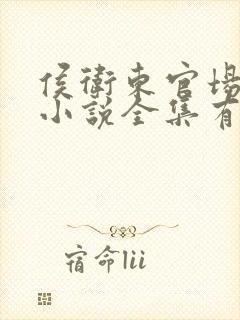 侯衛東官場
小説全集有
宿命lii